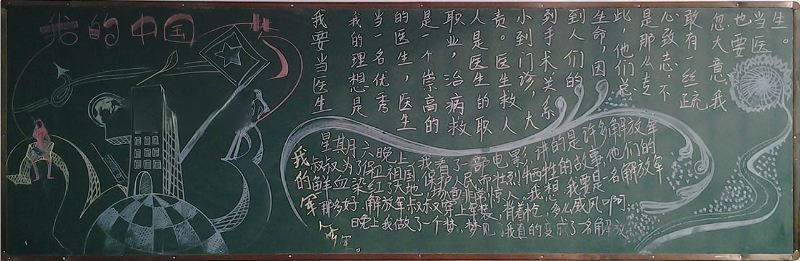 我的中国
我要当医生
我的理想是
当一名优秀
的医生，医生
是一个崇高的
职业，治病救
人是医生的职
责。医生救人
小到门诊，大
到手术关系
到人们的
生命，因
此，他们总
是那么专
心致志，不
敢有一丝疏
忽大意，我
也要
当医
生。
我的军
星期六晚上，我看了一部电影，讲的是许多解放军
叔叔为了保卫祖国、保护人民而壮烈牺牲的故事，他们的
鲜血染红了大地，场面很惊人，我想，我要是一名解放军
那多好，解放军叔叔穿上军装，肩着枪，多么威风啊
晚上我做了一个梦，梦见我真的变成了一名解放
军。